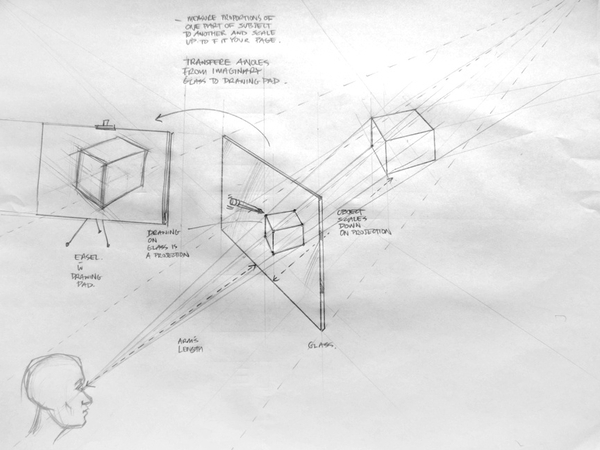 - MEASURE PROPORTIONS OF
ONE PART OF SUBJECT
TO ANOTHER AND SCALE
UP TO FIT YOUR PAGE.
TRANSFERE ANGLES
FROM IMAGINARY
GLASS TO DRAWING PAD.
OBJECT
SCALES
DOWN
ON PROJECTION
DRAWING
ON
GLASS IS
A PROJECTION
EASEL
&
DRAWING
PAD.
ARM'S
LENGTH
GLASS.